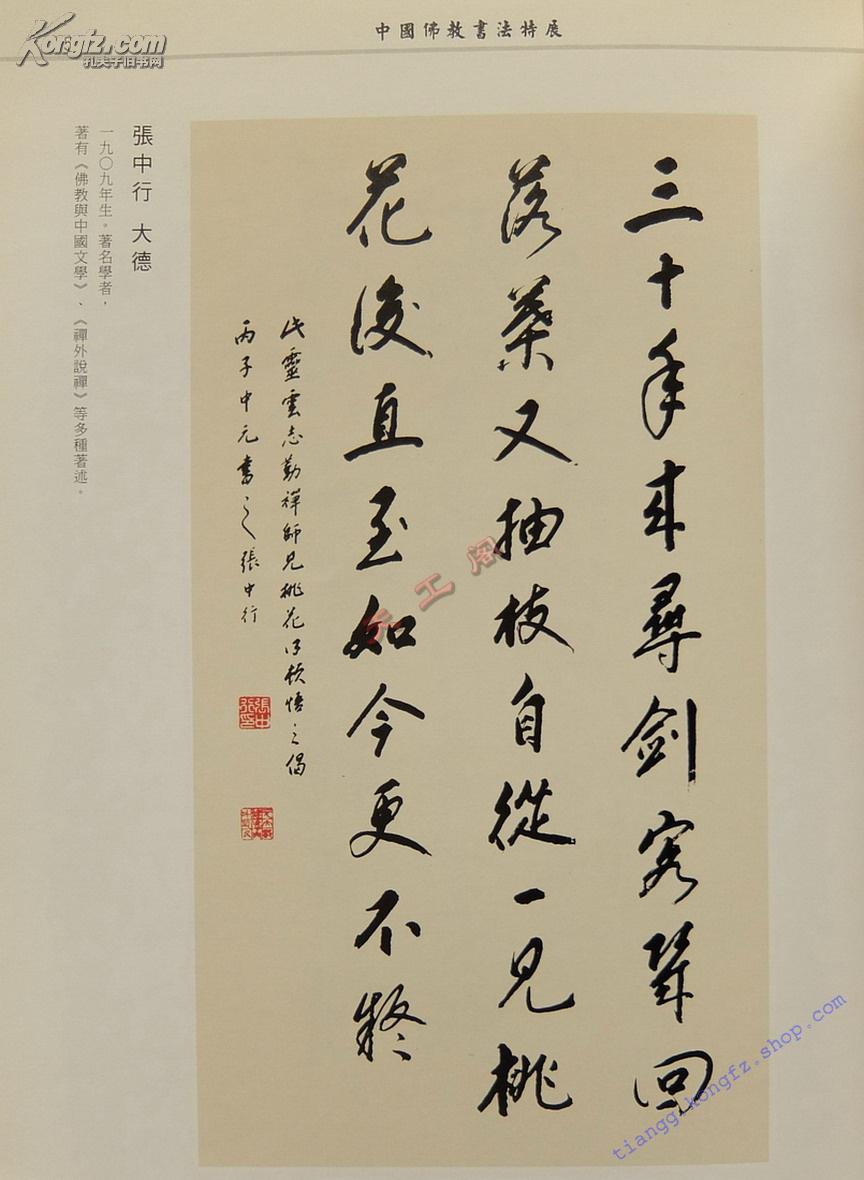 中國佛教書法特展
Kongfz.com
孔夫子旧书网
張中行 大德
一九〇九年生。著名學者，
著有《佛教與中國文學》、《禪外說禪》等多種著述。
三十年來尋劍客幾回
落葉又抽枝自從一見桃
花後直至如今更不疑
此靈雲志勤禪師見桃花得頓悟之偈
丙子中元書之張中行
天工阁
tianggekongfz.shop.com